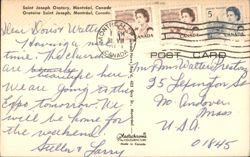 Saint Joseph Oratory, Montréal, Canada
Oratoire Saint Joseph, Montréal, Canada.
MONTREAL
CANADA
CANADA
CANADA
5
POST CARD
Dear Donor Walter
Having a nice
time. The churches
are
here.
We are going to this
Expo tomorrow. We
will be home for
the weekend.
Stella & Larry
Plastichrome
Made in Canada
Mr. Mrs Walter
35 Lexington St
No Andover
Mass
U.S.A
01845